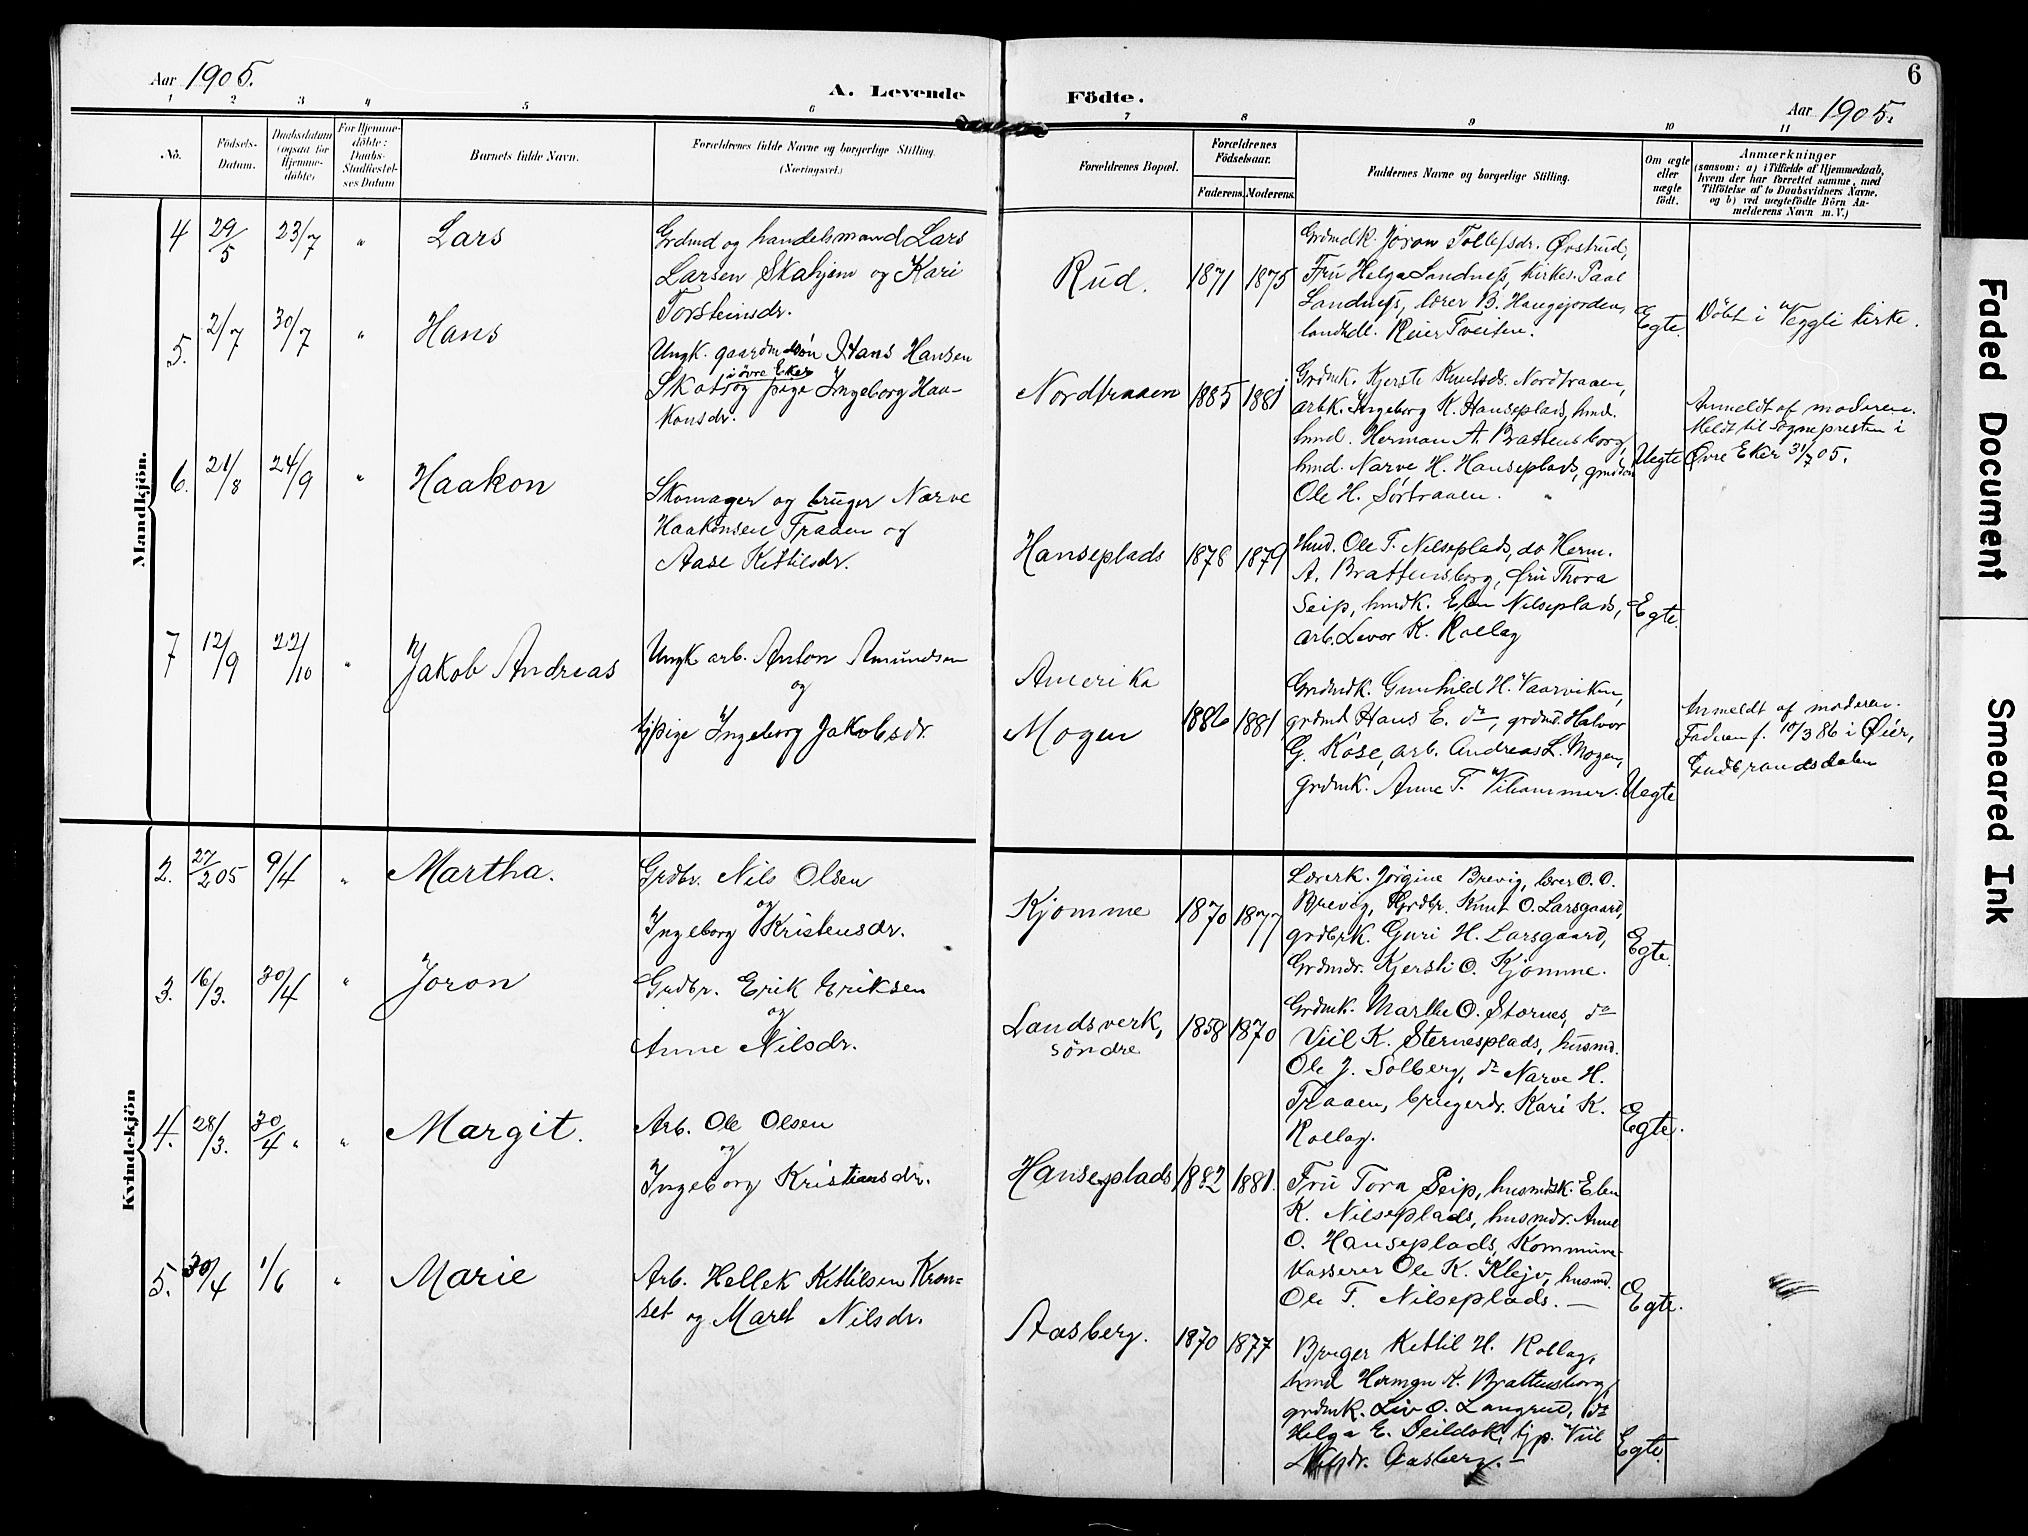 Aar 1905.
A. Levende
Födte.
Aar 1905.
6
1 2 3 4 5 6 7 8 9 10 11
No.
Födsels-
Datum.
Daabsdatum
(ogsaa for
Hjemme-
döbte)
For Hjemme-
döbte:
Daabs-
Stadfæstel-
ses Datum
Barnets fulde Navn.
Forældrenes fulde Navne og borgerlige Stilling.
(Næringsvei.)
Forældrenes Bopæl.
Forældrenes
Födselsaar.
Faderens. Moderens.
Faddernes Navne og borgerlige Stilling.
Om ægte
eller
uægte
födt.
Anmærkninger
(saasom: a) i Tilfælde af Hjemmedaab,
hvem der har forrettet samme, med
Tilföielse af to Daabsvidners Navne.
og b) ved uægtefödte Börn An-
melderens Navn m. V.)
Mandkjön.
4 29/5 23/7 " Lars
Grdmd og handelsmand Lars
Larsen Skahjem og Kari
Torsteinsdr.
Rud. 1871 1875
Grdmdk. Joron Tollefsdr. Øvstrud,
Fru Helga Landness, kirkes. Paal
Landness, lærer B. Haugejorden,
landhdl. Reier Tveiten.
Egte. Döbt i Veggli kirke.
5. 2/7 30/7 " Hans
Ungk. gaardmdsön Hans Hansen
i övre Eker
Skots og pige Ingeborg Haa-
konsdr.
Nordtraaen 1885 1881
Grdmk. Kjerste Knutsdr. Nordtraaen,
arbk. Ingeborg K. Hanseplads, hmd.
hmd. Herman A. Brattensborg,
hmd. Narve H. Hanseplads, gmdsön
Ole H. Sørtraaen.
Uegte
Anmeldt af moderen.
Meldt til Sognepresten i
Øvre Eker 31/7 05.
6. 21/8 24/9 " Haakon
Skomager og bruger Narve
Haakonsen Traaen og
Aase Kittilsdr.
Hanseplads 1878 1879
Hmd. Ole T. Nilseplads, do Herm.
A. Brattensborg, fru Thora
Seip, hmdk. Eben Nilseplads,
arb. Levor K. Rollag
Egte.
7 12/9 22/10 " Jakob Andreas
Ungk arb. Anton Amundsen
og
tjpige Ingeborg Jakobsdr.
Amerika
Mogen 1886 1881
Grdmdk. Gunhild H. Vaarviken,
grdmd Hans E. do, grdmd. Halvor
G. Kose, arb. Andreas L. Mogen,
grdmk. Anne T. Vihammer.
Uegte
Anmeldt af moderen.
Faderen f. 10/3 86 i Øier,
Gudbrandsdalen
Kvindekjön
2. 27/2 05 9/4 " Martha.
Grdbr. Nils Olsen
og
Ingeborg Kristensdr.
Kjomme 1870 1877
Lærerk. Jörgine Brevig, lærer O. O.
Brevig, Grdbr. Knut O. Larsgaard,
grdbrk. Guri H. Larsgaard,
Grdmdr. Kjersti O. Kjomme.
Egte.
3. 16/3. 30/4 " Joron
Grdbr. Erik Eriksen
og
Anne Nilsdr.
Landsverk, 1858 1870
söndre
Grdmk. Marthe O. Stornes, do
Viil K. Sternesplads, husmd.
Ole J. Solberg, do Narve H.
Traaen, brugerdr. Kari K.
Rollag.
Egte.
4. 28/3. 30/4 " " Margit.
Arb. Ole Olsen
og
Ingeborg Kristiansdr.
Hanseplads 1882 1881.
Fru Tora Seip, husmdsk. Eben
K. Nilseplads, husmdr. Anne
O. Hanseplads, Kommune-
kasserer Ole K. Klejv, husmd.
Ole T. Nilseplads. —
Egte.
5. 30/4 1/6 " Marie
Arb. Hellek Kittilsen Kron-
set og Maret Nilsdr.
Aasberg. 1870 1877
Bruger Kittil H. Rollag,
hmd Herman A. Brattensborg,
grdmk. Liv O. Langrud, do
Helga E. Deildok, tjp. Viil
Nilsdr. Aasberg. —
Egte.
Faded Document
Smeared Ink